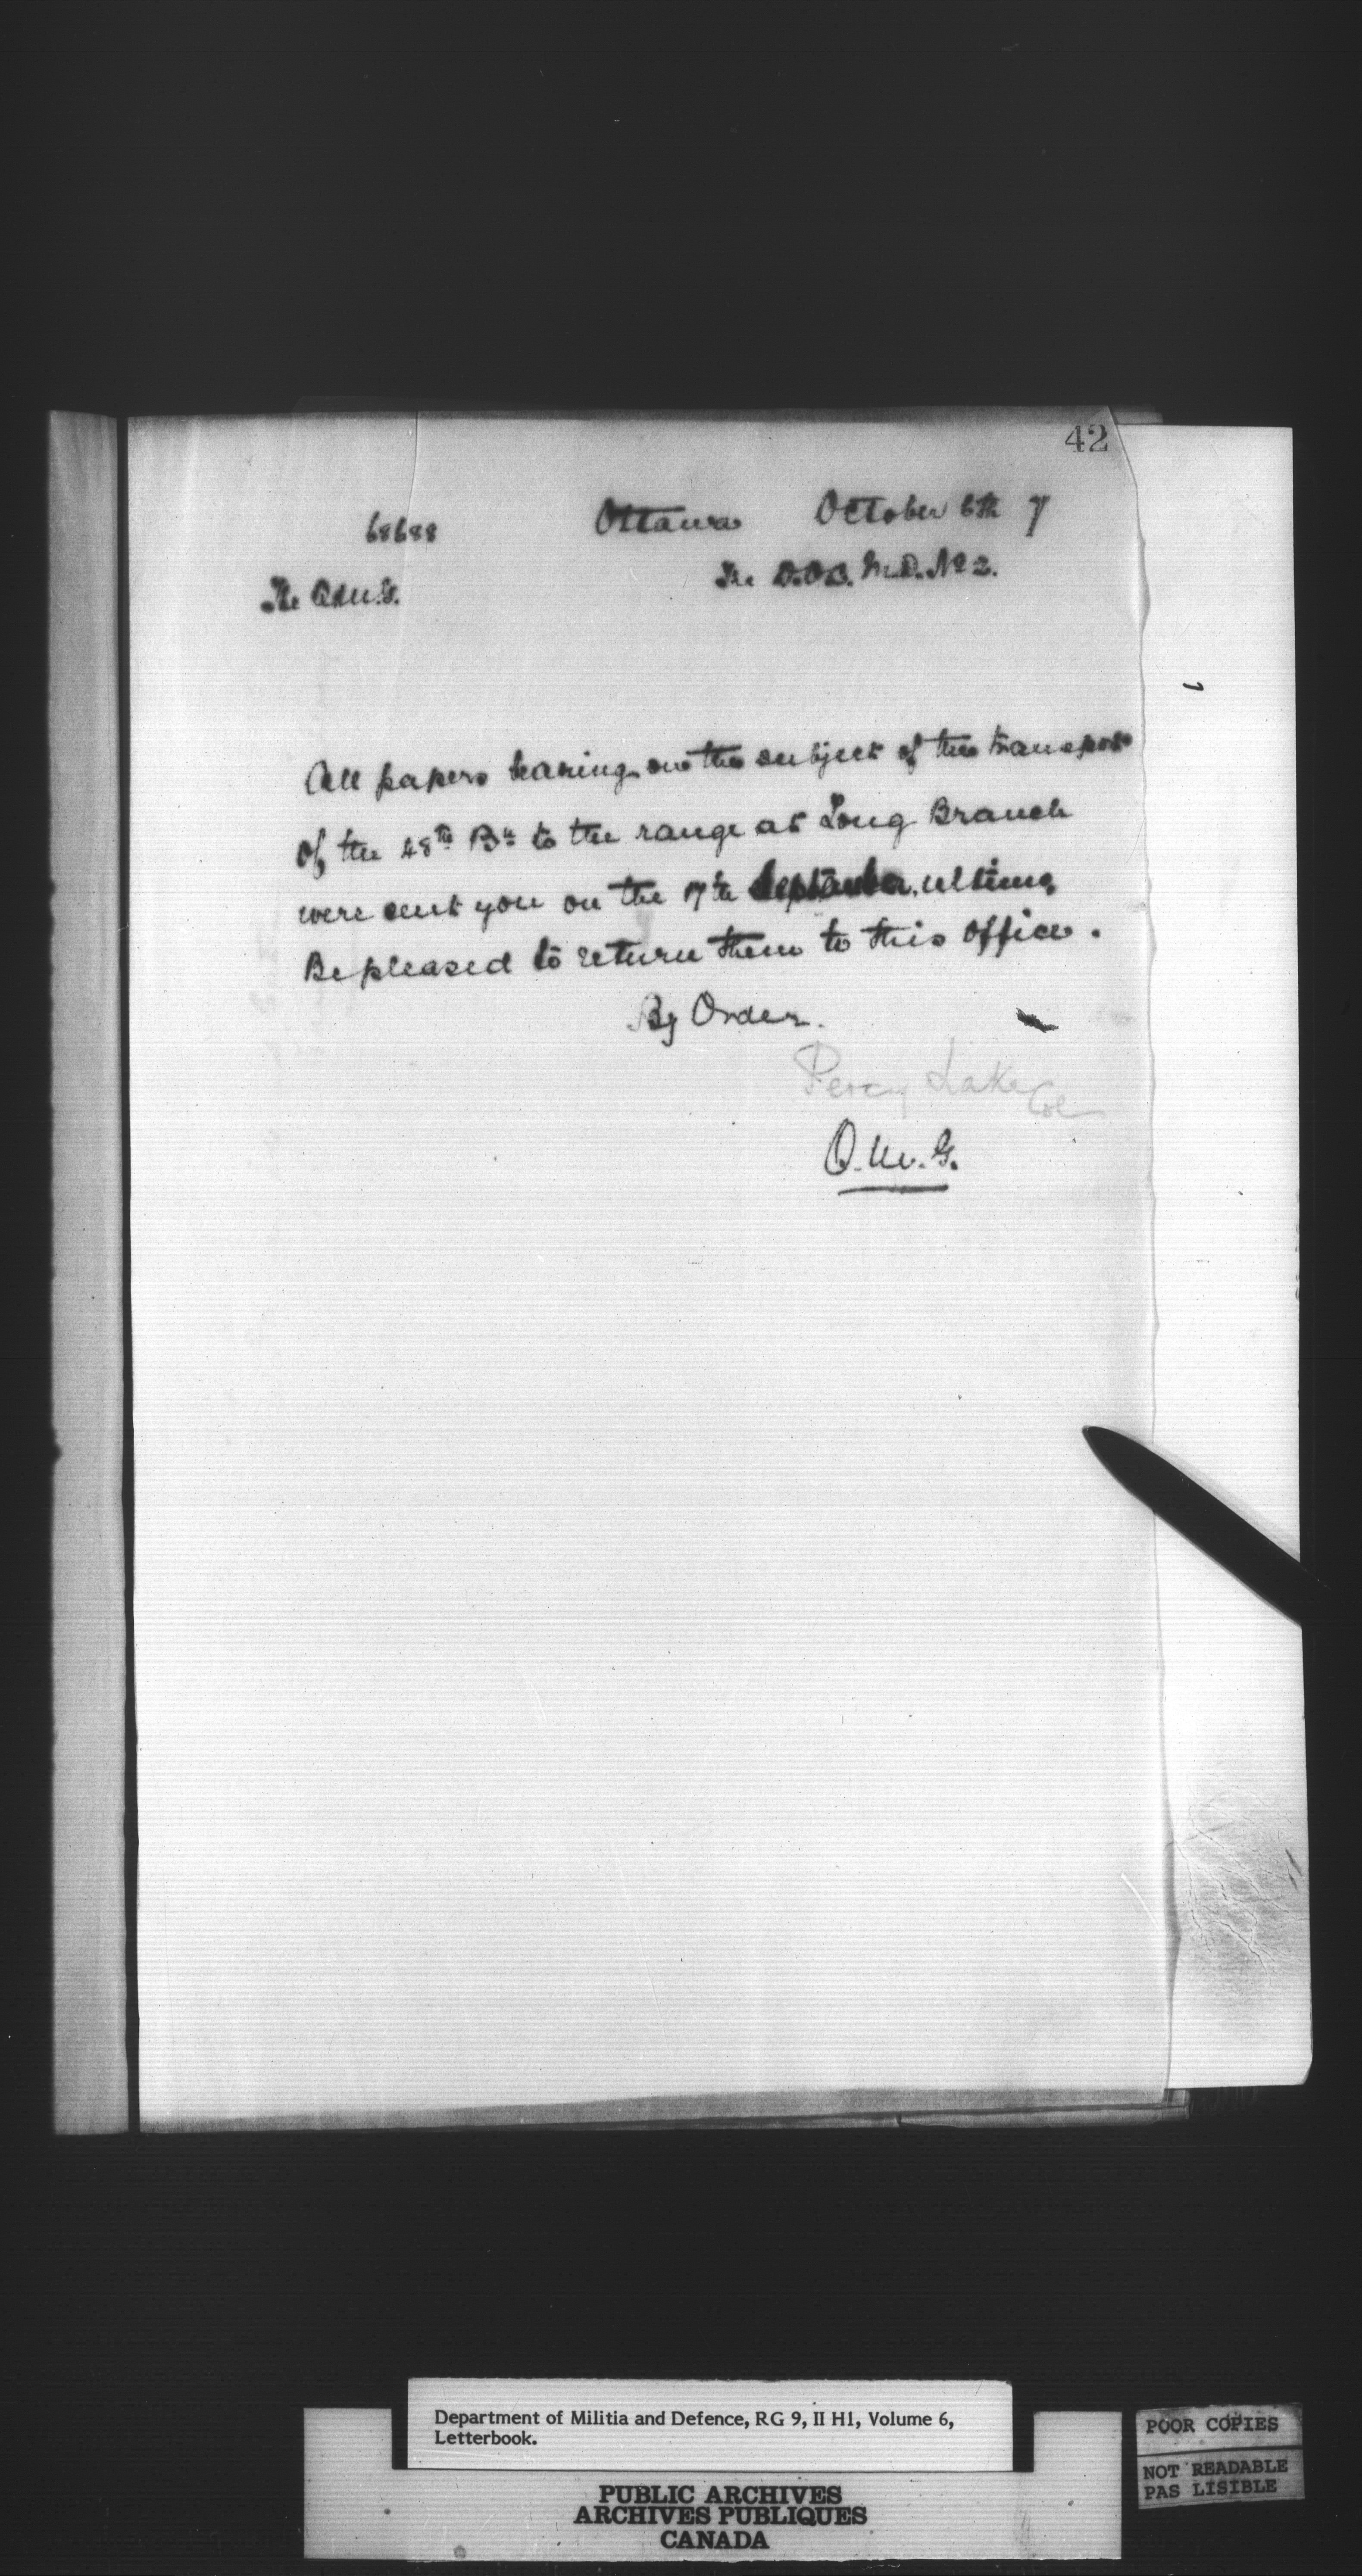 42
68688
Ottawa October 6th 7
The Q.M.G.
The D.O.C. M.D. No 2.
All papers bearing on the subject of the transport
of the 48th Bn to the range at Long Branch
were sent you on the 17th September, ultimo,
Be pleased to return them to this Office.
By Order.
Percy Lake Col
Q.M.G.
Department of Militia and Defence, RG 9, II H1, Volume 6,
Letterbook.
PUBLIC ARCHIVES
ARCHIVES PUBLIQUES
CANADA
POOR COPIES
NOT READABLE
PAS LISIBLE